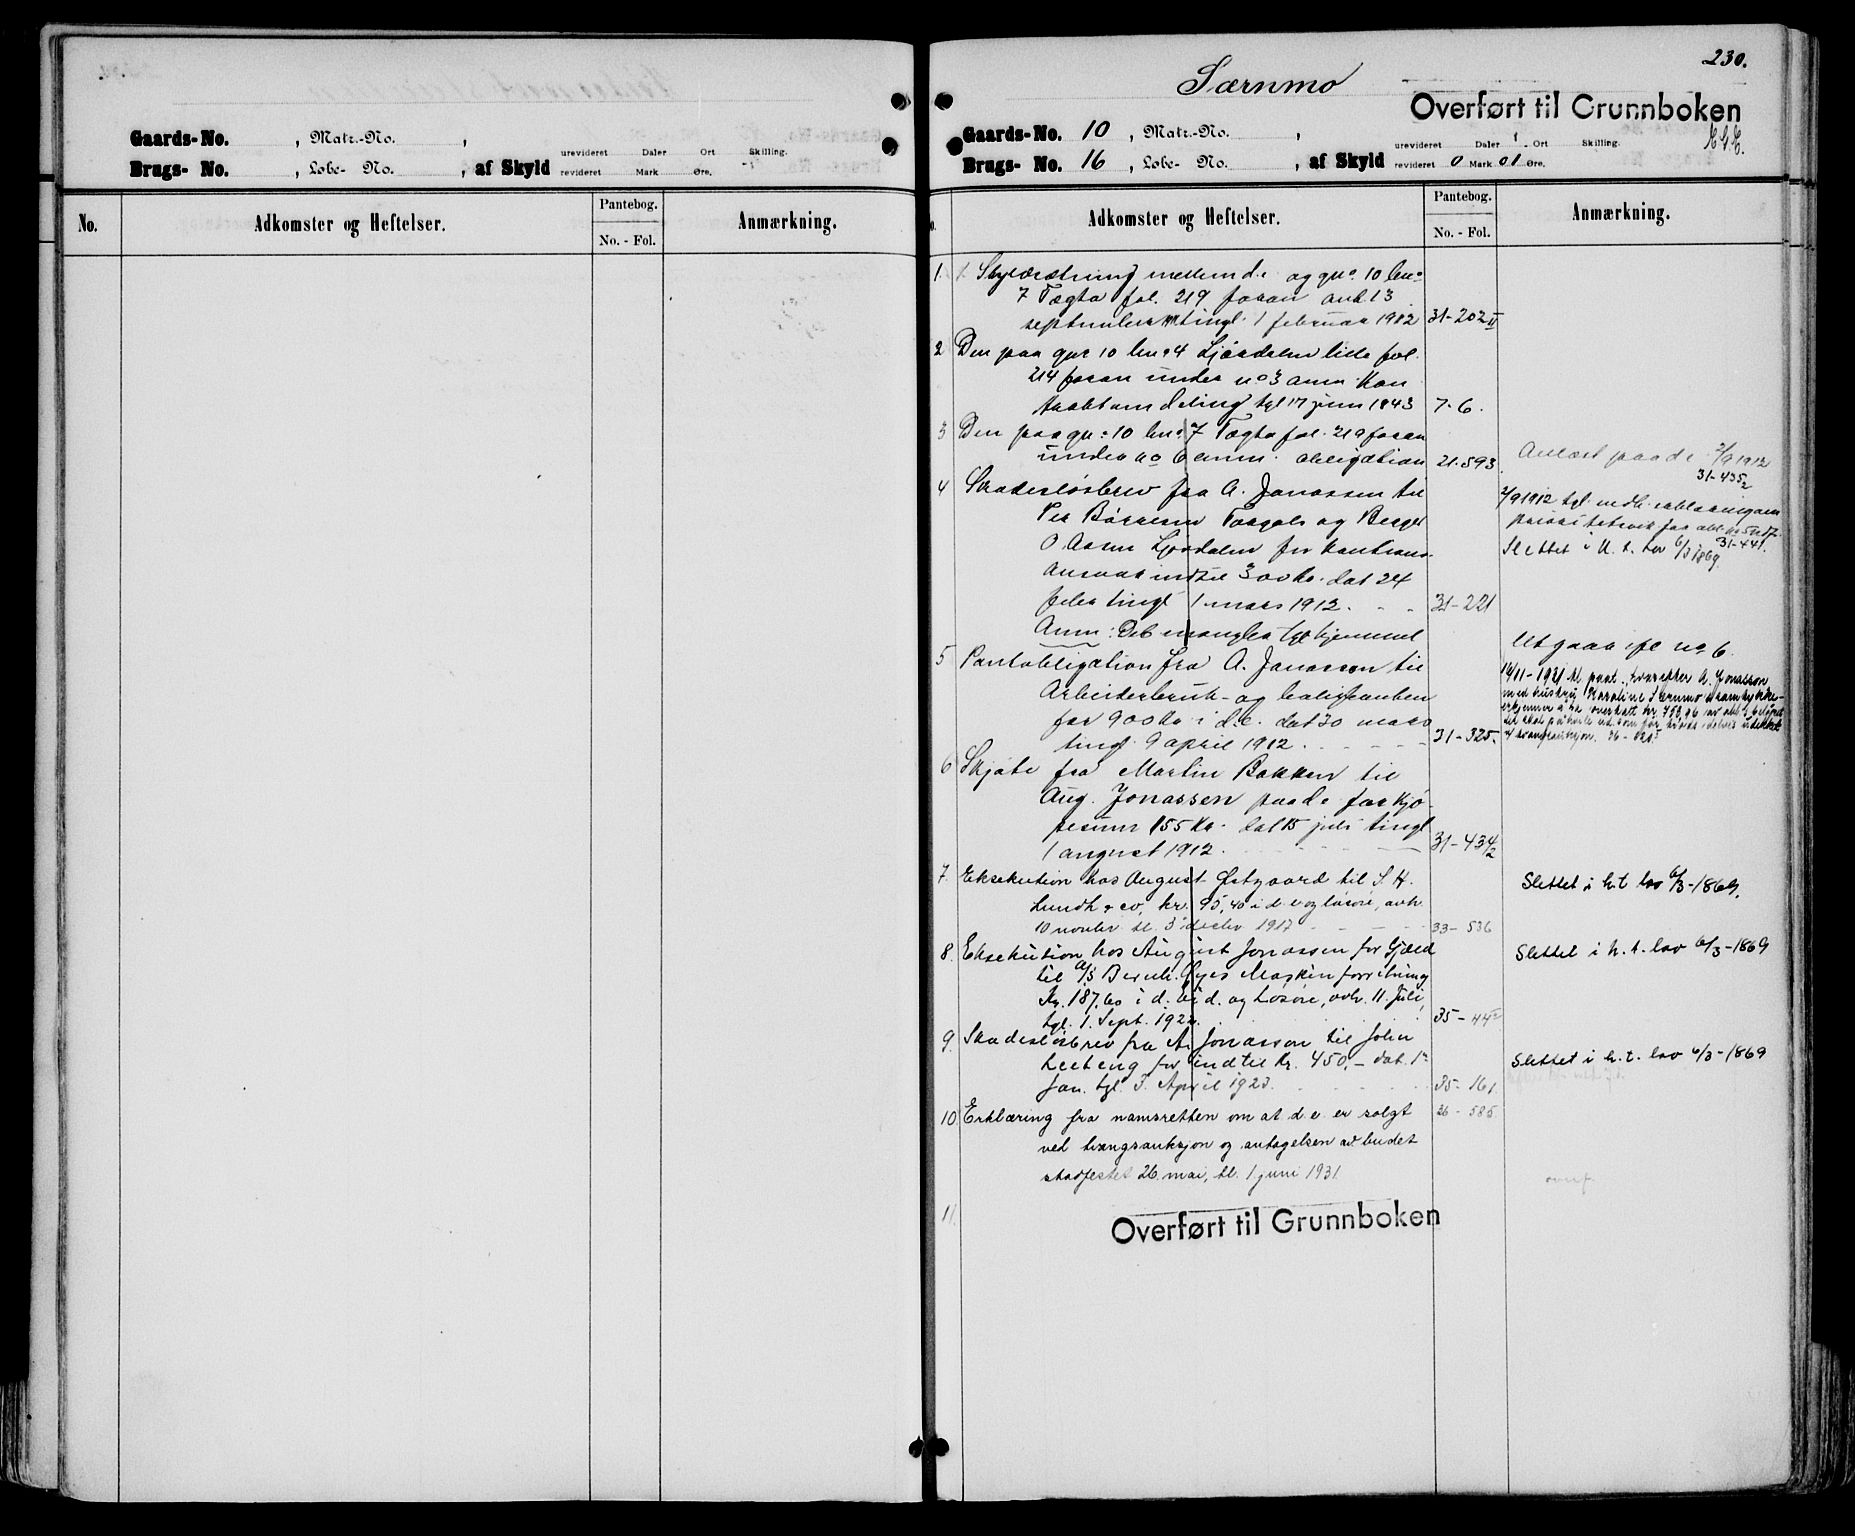 Gaards-No. , Matr.-No. ,
Brugs- No. , Løbe- No. , af Skyld urevideret Daler Ort Skilling.
revideret Mark Øre.
No. Adkomster og Heftelser. Pantebog. No. - Fol. Anmærkning.
230.
Særnmo
Overført til Grunnboken
Gaards-No. 10 , Matr.-No. ,
Brugs- No. 16 , Løbe- No. , af Skyld urevideret Daler 1 Ort Skilling.
revideret 0 Mark 01 Øre.
Adkomster og Heftelser. Pantebog. No. - Fol. Anmærkning.
1. Skyldætning mellem d.e. og gno 10 bno
7 Tægta fol. 219 foran avh 13
september tingl. 1 februar 1912 31-202 II
2 Den paa gno 10 bno 4 Ljørdalen lille fol.
214 foran under no 3 anm. Kon
traktom deling tgl 17 juni 1843 7-6.
3 Den paa gno 10 bno 7 Tægta fol. 219 foran
under no 6 anm. obligation 21-593.
Anløst paa d.e. 2/9 1912
31-435/2
4 Skadesløsbrev fra A. Jonassen til
Per Børresen Torgals og Berger
O Aasen Ljørdalen for kautions-
ansvar indtil 300 kr. dat 24
febr tingl 1 mars 1912. 31-221
Anm: Det mangler tgl hjemmel
2/9 1912 tgl. medh. erklæring om
31-441.
Slettet i h. t. lov 6/3 1869.
5 Pantobligation fra A. Jonassen til
Arbeiderbruk- og boligbanken
for 900 kr i d.e. dat 30 mars
tingl. 9 april 1912. 31-325.
Utgaar ifl no 6.
14/11-1921 tl. paat., hvorefter A. Jonassen
med hustru Karoline Særnmo
6 Skjøte fra Martin Bakken til
Aug. Jonassen paa d.e. for kjø-
pesum 155 Kr. dat 15 juli tingl
1 august 1912. 31-434/2
7. Eksekution hos August Østgaard til S. H.
Lundh & co, kr. 95,40 i d.e. og løsøre, avh.
10 novbr. tl. 3 decbr 1917 33-536
Slettet i h.t. lov 6/3-1869.
8. Eksekution hos August Jonassen for Gjæld
til A/S Bernh. Øyes Maskinforretning
Kr. 187,60 i d. Eid. og Løsøre, avh. 11. Juli,
tgl. 1. Sept. 1922. 35-44
Slettet i h. t. lov 6/3-1869
9. Skadesløsbrev fra A. Jonasson til John
Leeteng for indtil Kr. 450,- dat. 1
Jan. tgl. 3. April 1923. 35-161.
Slettet i h. t. lov 6/3-1869
10. Erklæring fra namsretten om at d.e. er solgt
ved tvangsauksjon og antagelsen av budet
stadfestet 26. mai, tl. 1. juni 1931. 26-585.
11.
Overført til Grunnboken